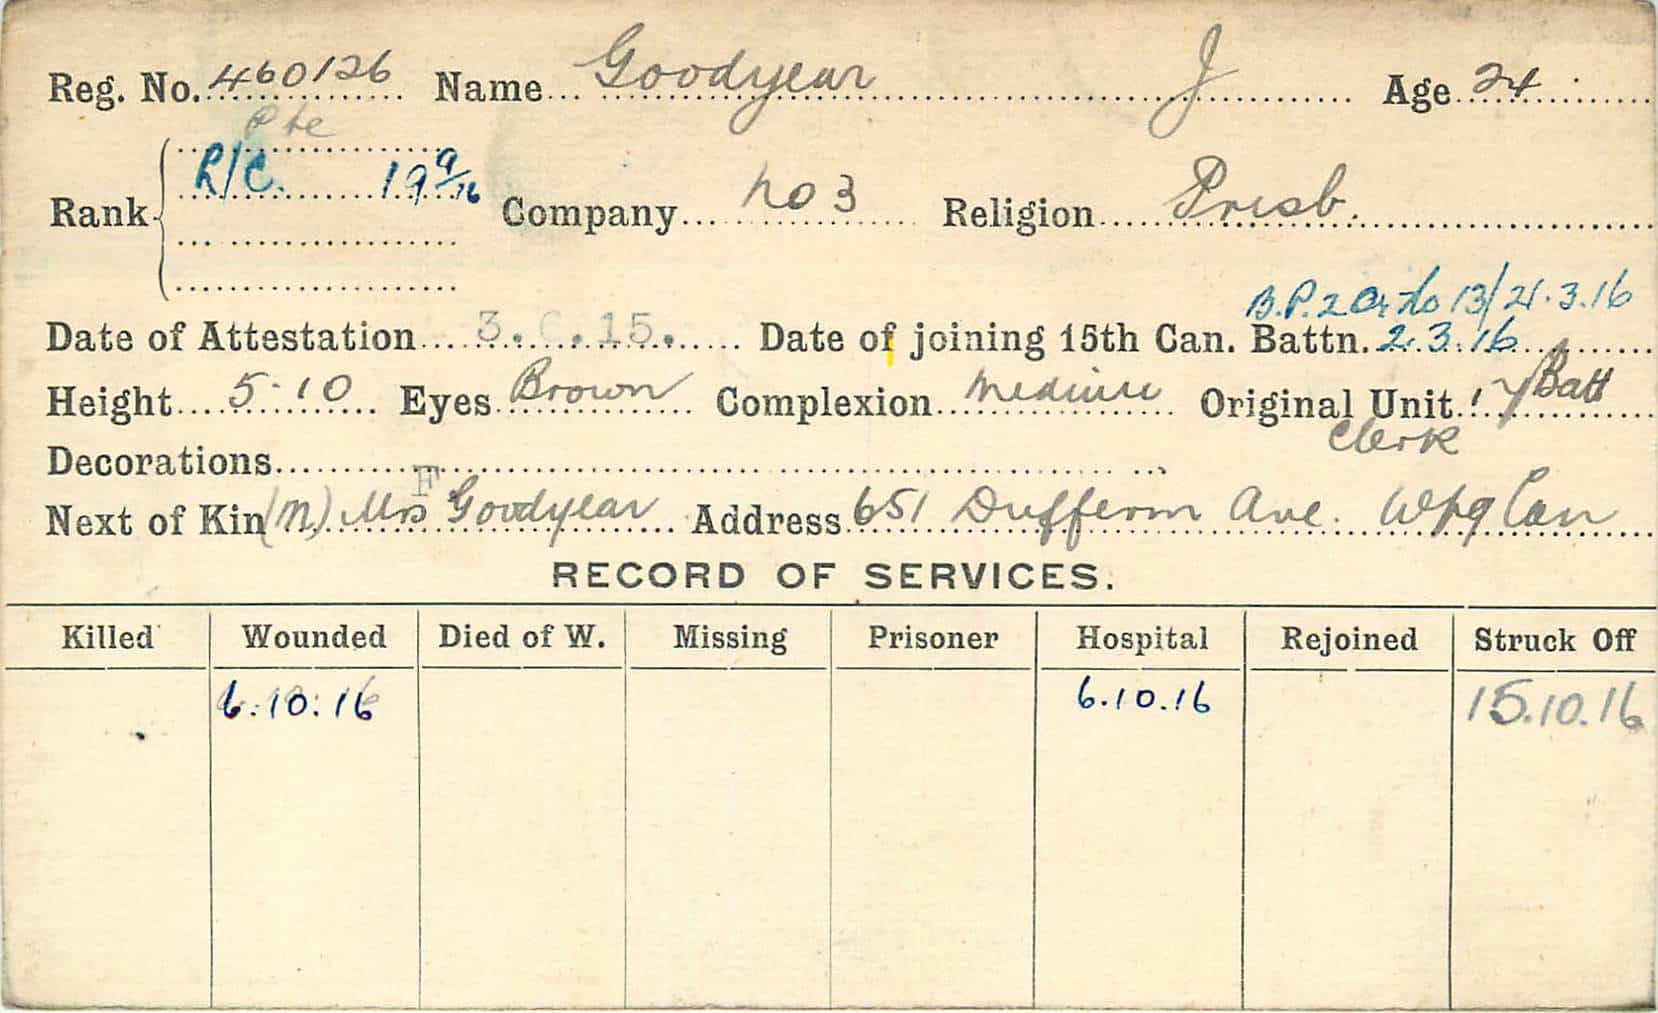 Reg. No. 460126 Name Goodyear J Age 24
Pte
Rank R/C. 19 9/16 Company No 3 Religion Presb.
B.P.2 Or No 13/21.3.16
Date of Attestation 3. .15. Date of joining 15th Can. Battn. 2.3.16
Height 5-10 Eyes Brown Complexion Medium Original Unit 17 Batt
Clerk
Decorations
F
Next of Kin (M) Mrs Goodyear Address 651 Dufferin Ave. Wpg Can
RECORD OF SERVICES.
Killed Wounded Died of W. Missing Prisoner Hospital Rejoined Struck Off
6.10.16 6.10.16 15.10.16